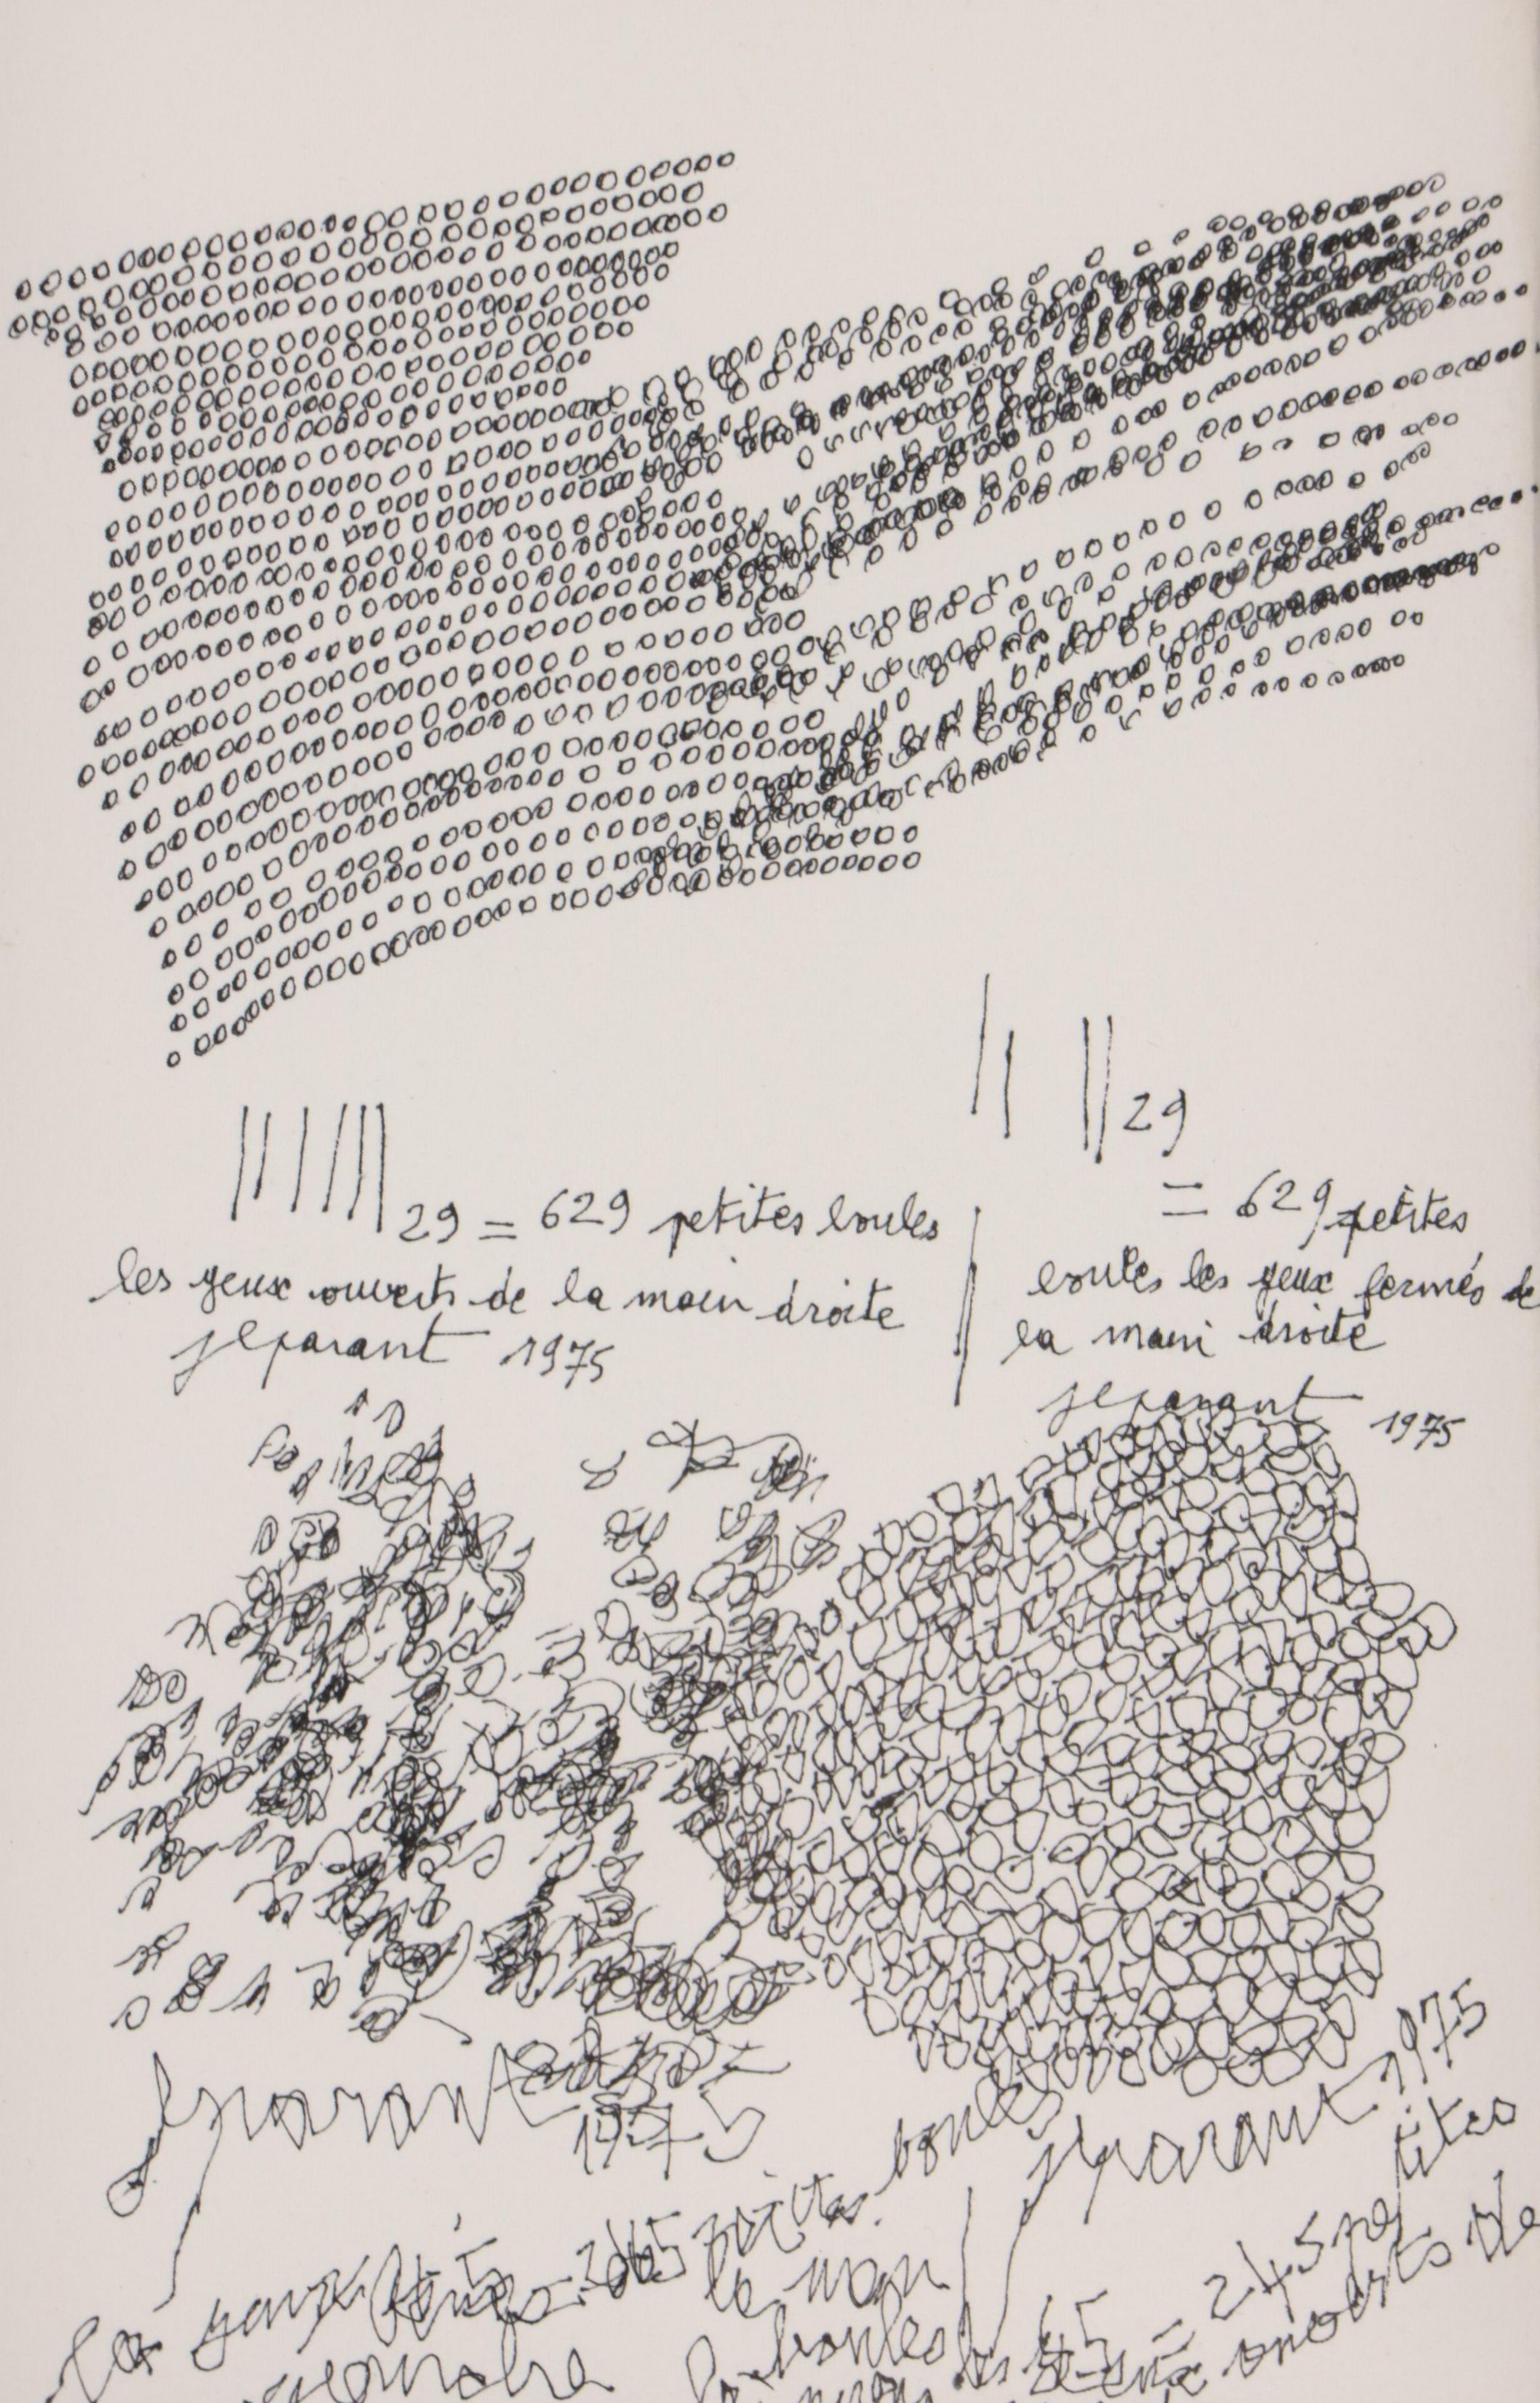 29 = 629 petites boules
les yeux ouverts de la main droite
jlparant 1975
29
= 629 petites
boules les yeux fermés de
la main droite
jlparant 1975
jlparant
1975
jlparant 1975
les yeux fermés 245 petites boules
la main
gauche
= 245 petites
boules les yeux ouverts de